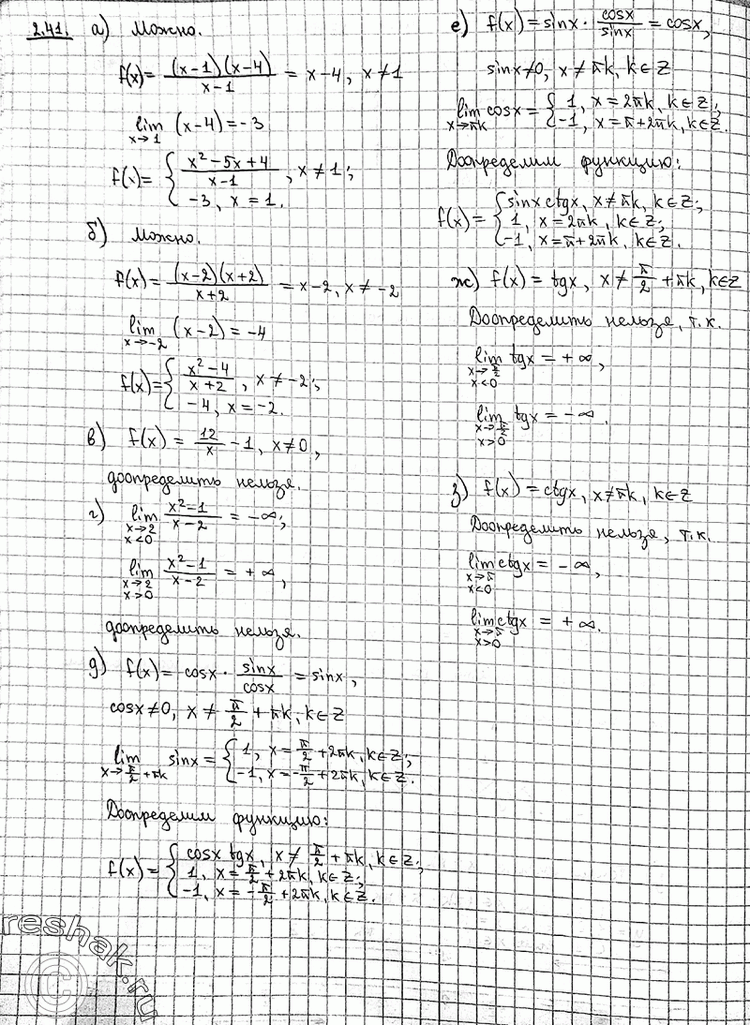 2.41. а) Можно.
f(x) = (x-1)(x-4)/(x-1) = x-4, x≠1
lim x→1 (x-4) = -3
f(x) = { (x²-5x+4)/(x-1), x≠1;
-3, x = 1.
б) Можно.
f(x) = (x-2)(x+2)/(x+2) = x-2, x≠-2
lim x→-2 (x-2) = -4
f(x) = { (x²-4)/(x+2), x≠-2;
-4, x = -2.
в) f(x) = 12/x - 1, x≠0,
доопределить нельзя.
г) lim x→2 x<0 (x²-1)/(x-2) = -∞;
lim x→2 x>0 (x²-1)/(x-2) = +∞,
доопределить нельзя.
д) f(x) = cosx · sinx/cosx = sinx,
cosx≠0, x≠ π/2 + πk, k∈Z
lim x→π/2+πk sinx = { 1, x = π/2 + 2πk, k∈Z;
-1, x = -π/2 + 2πk, k∈Z.
Доопределим функцию:
f(x) = { cosx tgx, x≠ π/2 + πk, k∈Z;
1, x = π/2 + 2πk, k∈Z;
-1, x = -π/2 + 2πk, k∈Z.
е) f(x) = sinx · cosx/sinx = cosx,
sinx≠0, x≠πk, k∈Z
lim x→πk cosx = { 1, x = 2πk, k∈Z;
-1, x = π+2πk, k∈Z.
Доопределим функцию:
f(x) = { sinx ctgx, x≠πk, k∈Z;
1, x = 2πk, k∈Z;
-1, x = π+2πk, k∈Z.
ж) f(x) = tgx, x≠ π/2 + πk, k∈Z
Доопределить нельзя, т.к.
lim x→π/2 x<0 tgx = +∞,
lim x→π/2 x>0 tgx = -∞.
з) f(x) = ctgx, x≠πk, k∈Z
Доопределить нельзя, т.к.
lim x→π x<0 ctgx = -∞,
lim x→π x>0 ctgx = +∞.
reshak.ru